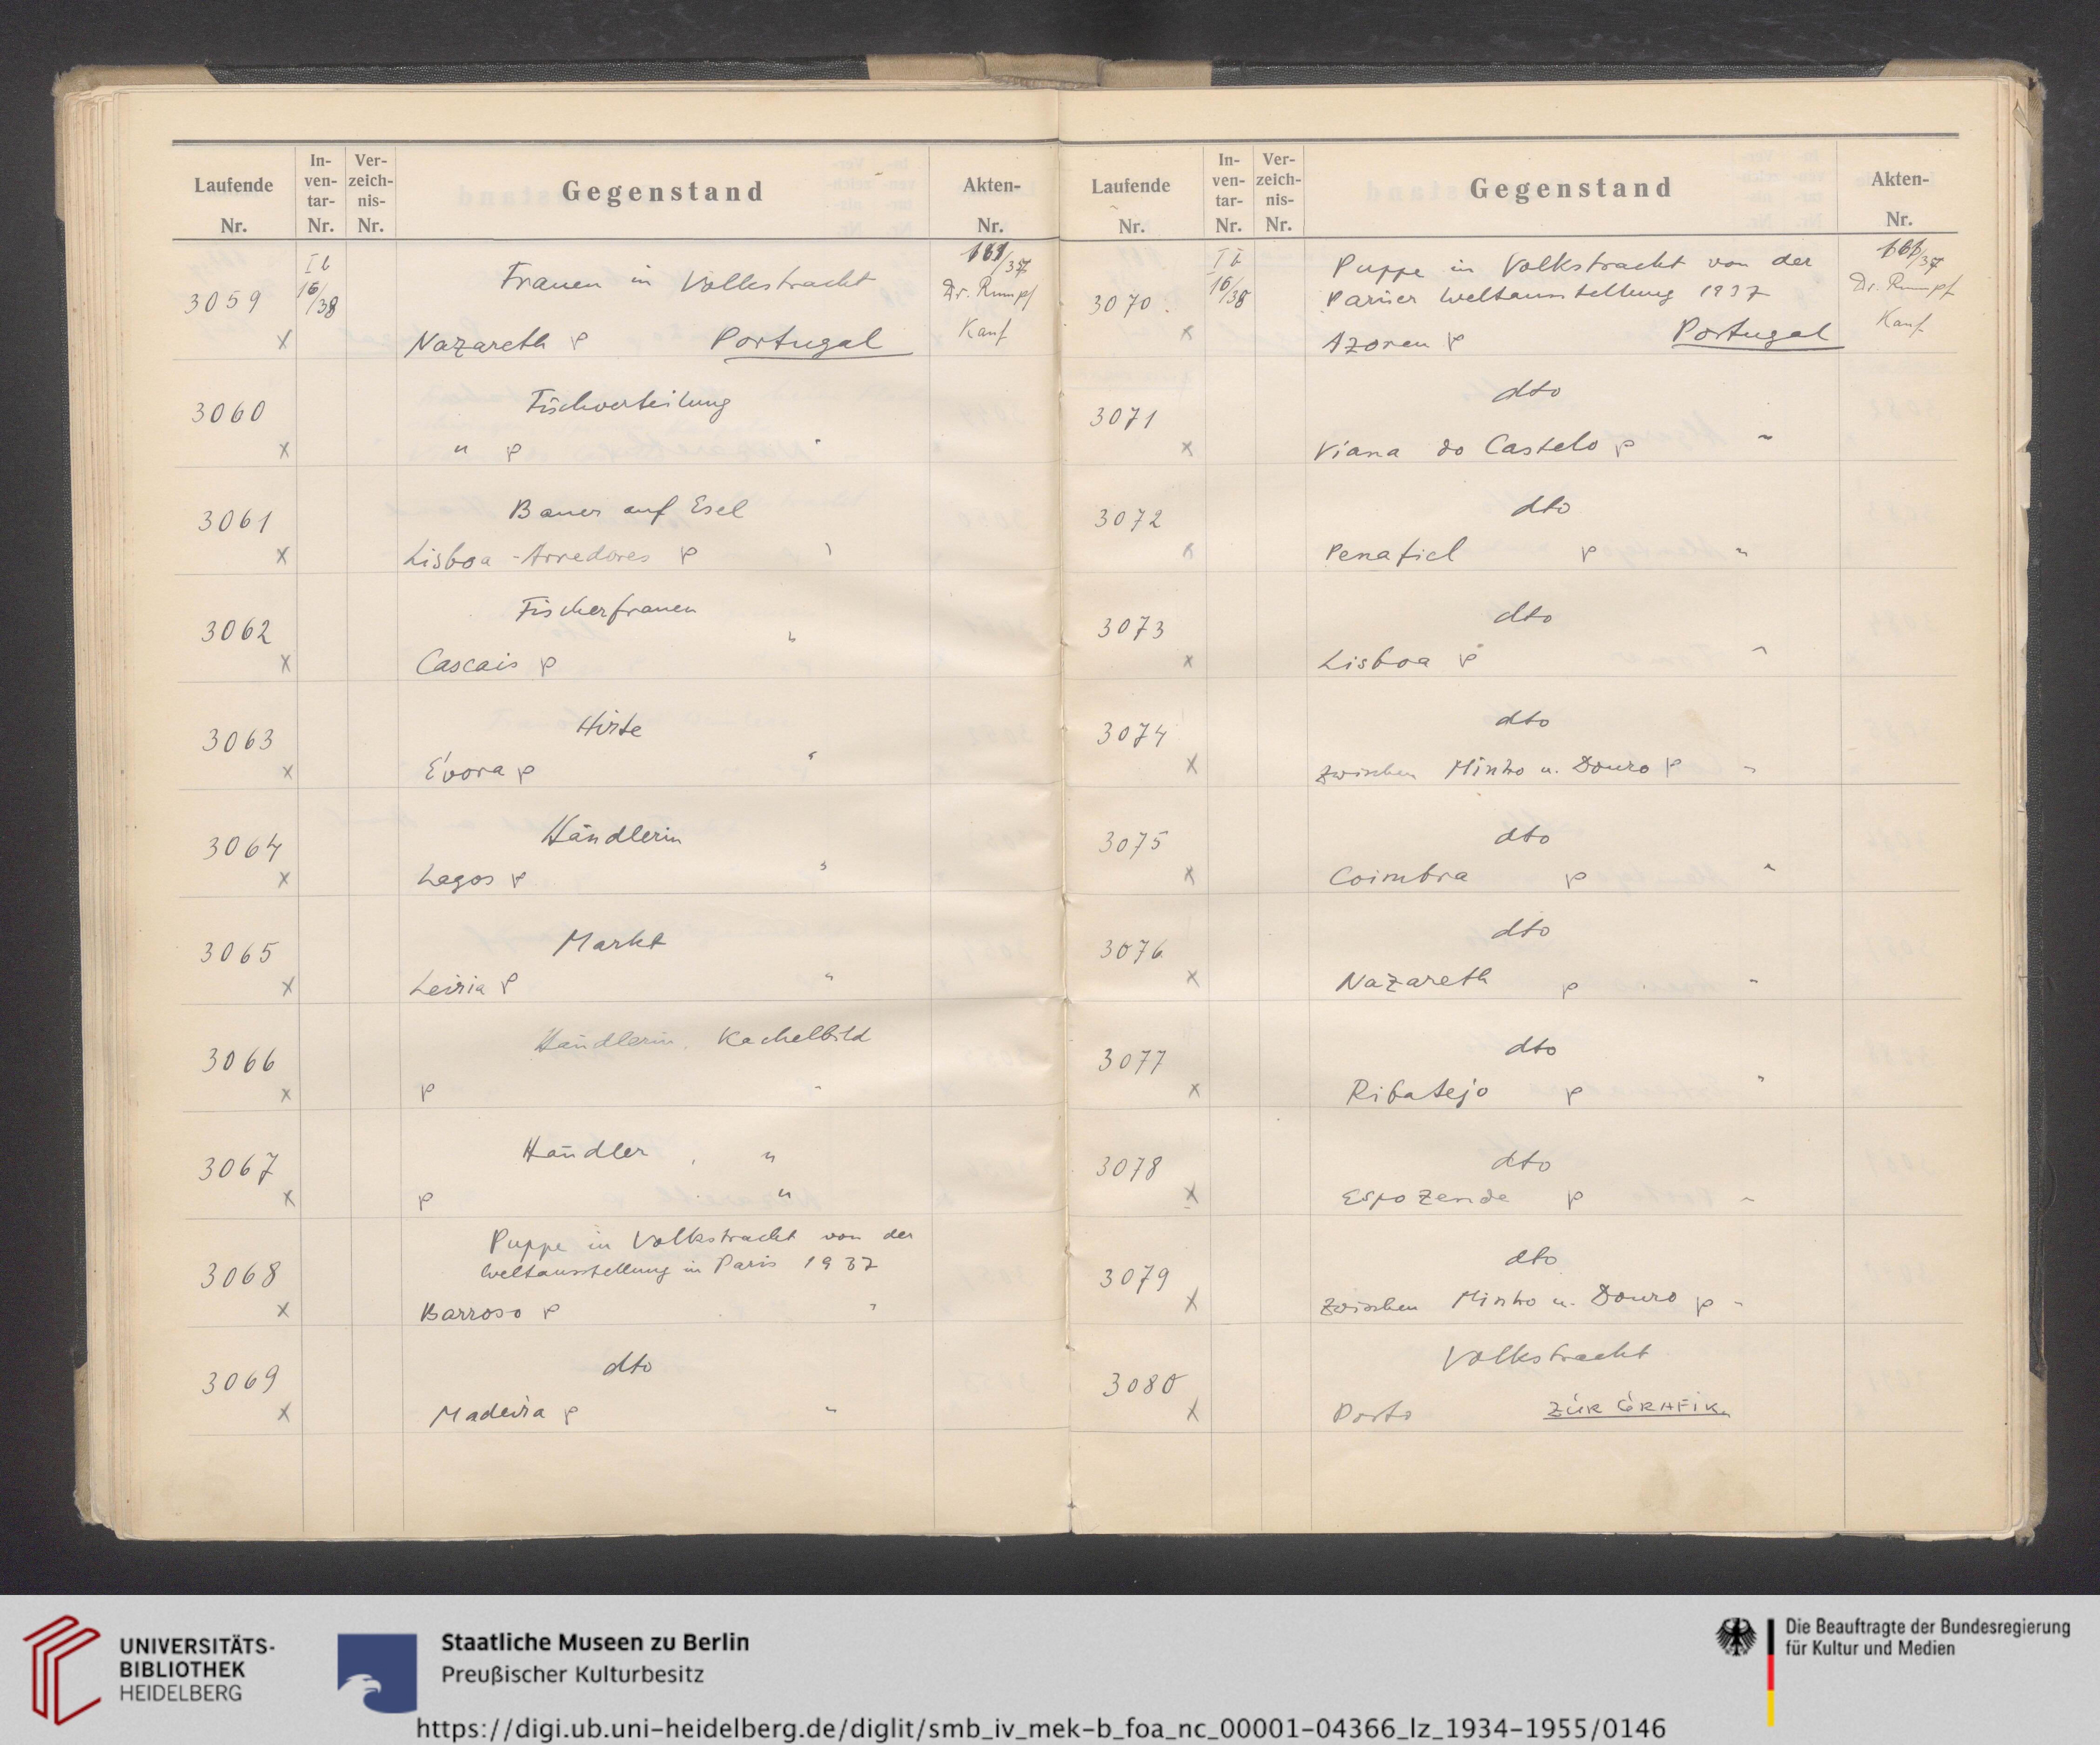 Laufende Nr.
In-ven-tar-Nr.
Ver-zeich-nis-Nr.
Gegenstand
Akten-Nr.
3059
I b
16/38
Frauen in Volkstracht
Nazareth P Portugal
/37
Dr. Rumpf
Kauf
x
3060
Fischverteilung
" P "
x
3061
Bauer auf Esel
Lisboa - Arredores P "
x
3062
Fischerfrauen
Cascais P "
x
3063
Hirte
Évora P "
x
3064
Händlerin
Lagos P "
x
3065
Markt
Leiria P "
x
3066
Händlerin, Kachelbild
P "
x
3067
Händler, "
P "
x
3068
Puppe in Volkstracht von der
Weltausstellung in Paris 1937
Barroso P "
x
3069
dto
Madeira P "
x
Laufende Nr.
In-ven-tar-Nr.
Ver-zeich-nis-Nr.
Gegenstand
Akten-Nr.
3070.
I b
16/38
Puppe in Volkstracht von der
Pariser Weltausstellung 1937
Azoren P Portugal
/37
Dr. Rumpf
Kauf
x
3071
dto
Viana do Castelo P "
x
3072
dto
Penafiel P "
x
3073
dto
Lisboa P "
x
3074
dto
zwischen Minho u. Douro P "
x
3075
dto
Coimbra P "
x
3076
dto
Nazareth P "
x
3077
dto
Ribatejo P "
x
3078
dto
Espozende P "
x
3079
dto
zwischen Minho u. Douro P "
x
3080
Volkstracht
Porto ZUR GRAFIK
x
UNIVERSITÄTS-
BIBLIOTHEK
HEIDELBERG
Staatliche Museen zu Berlin
Preußischer Kulturbesitz
Die Beauftragte der Bundesregierung
für Kultur und Medien
https://digi.ub.uni-heidelberg.de/diglit/smb_iv_mek-b_foa_nc_00001-04366_lz_1934-1955/0146